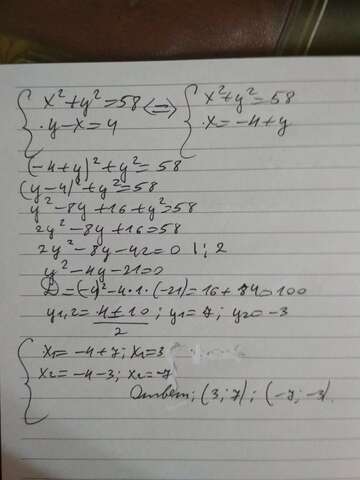 { x²+y²=58 <=> { x²+y²=58
{ y-x=4 { x=-4+y
(-4+y)²+y²=58
(y-4)²+y²=58
y²-8y+16+y²=58
2y²-8y+16=58
2y²-8y-42=0 | : 2
y²-4y-21=0
D=(-4)²-4·1·(-21)=16+84=100
y1,2=4±10/2; y1=7; y2=-3
{ x1=-4+7; x1=3
{ x2=-4-3; x2=-7
Ответ: (3; 7); (-7; -3).